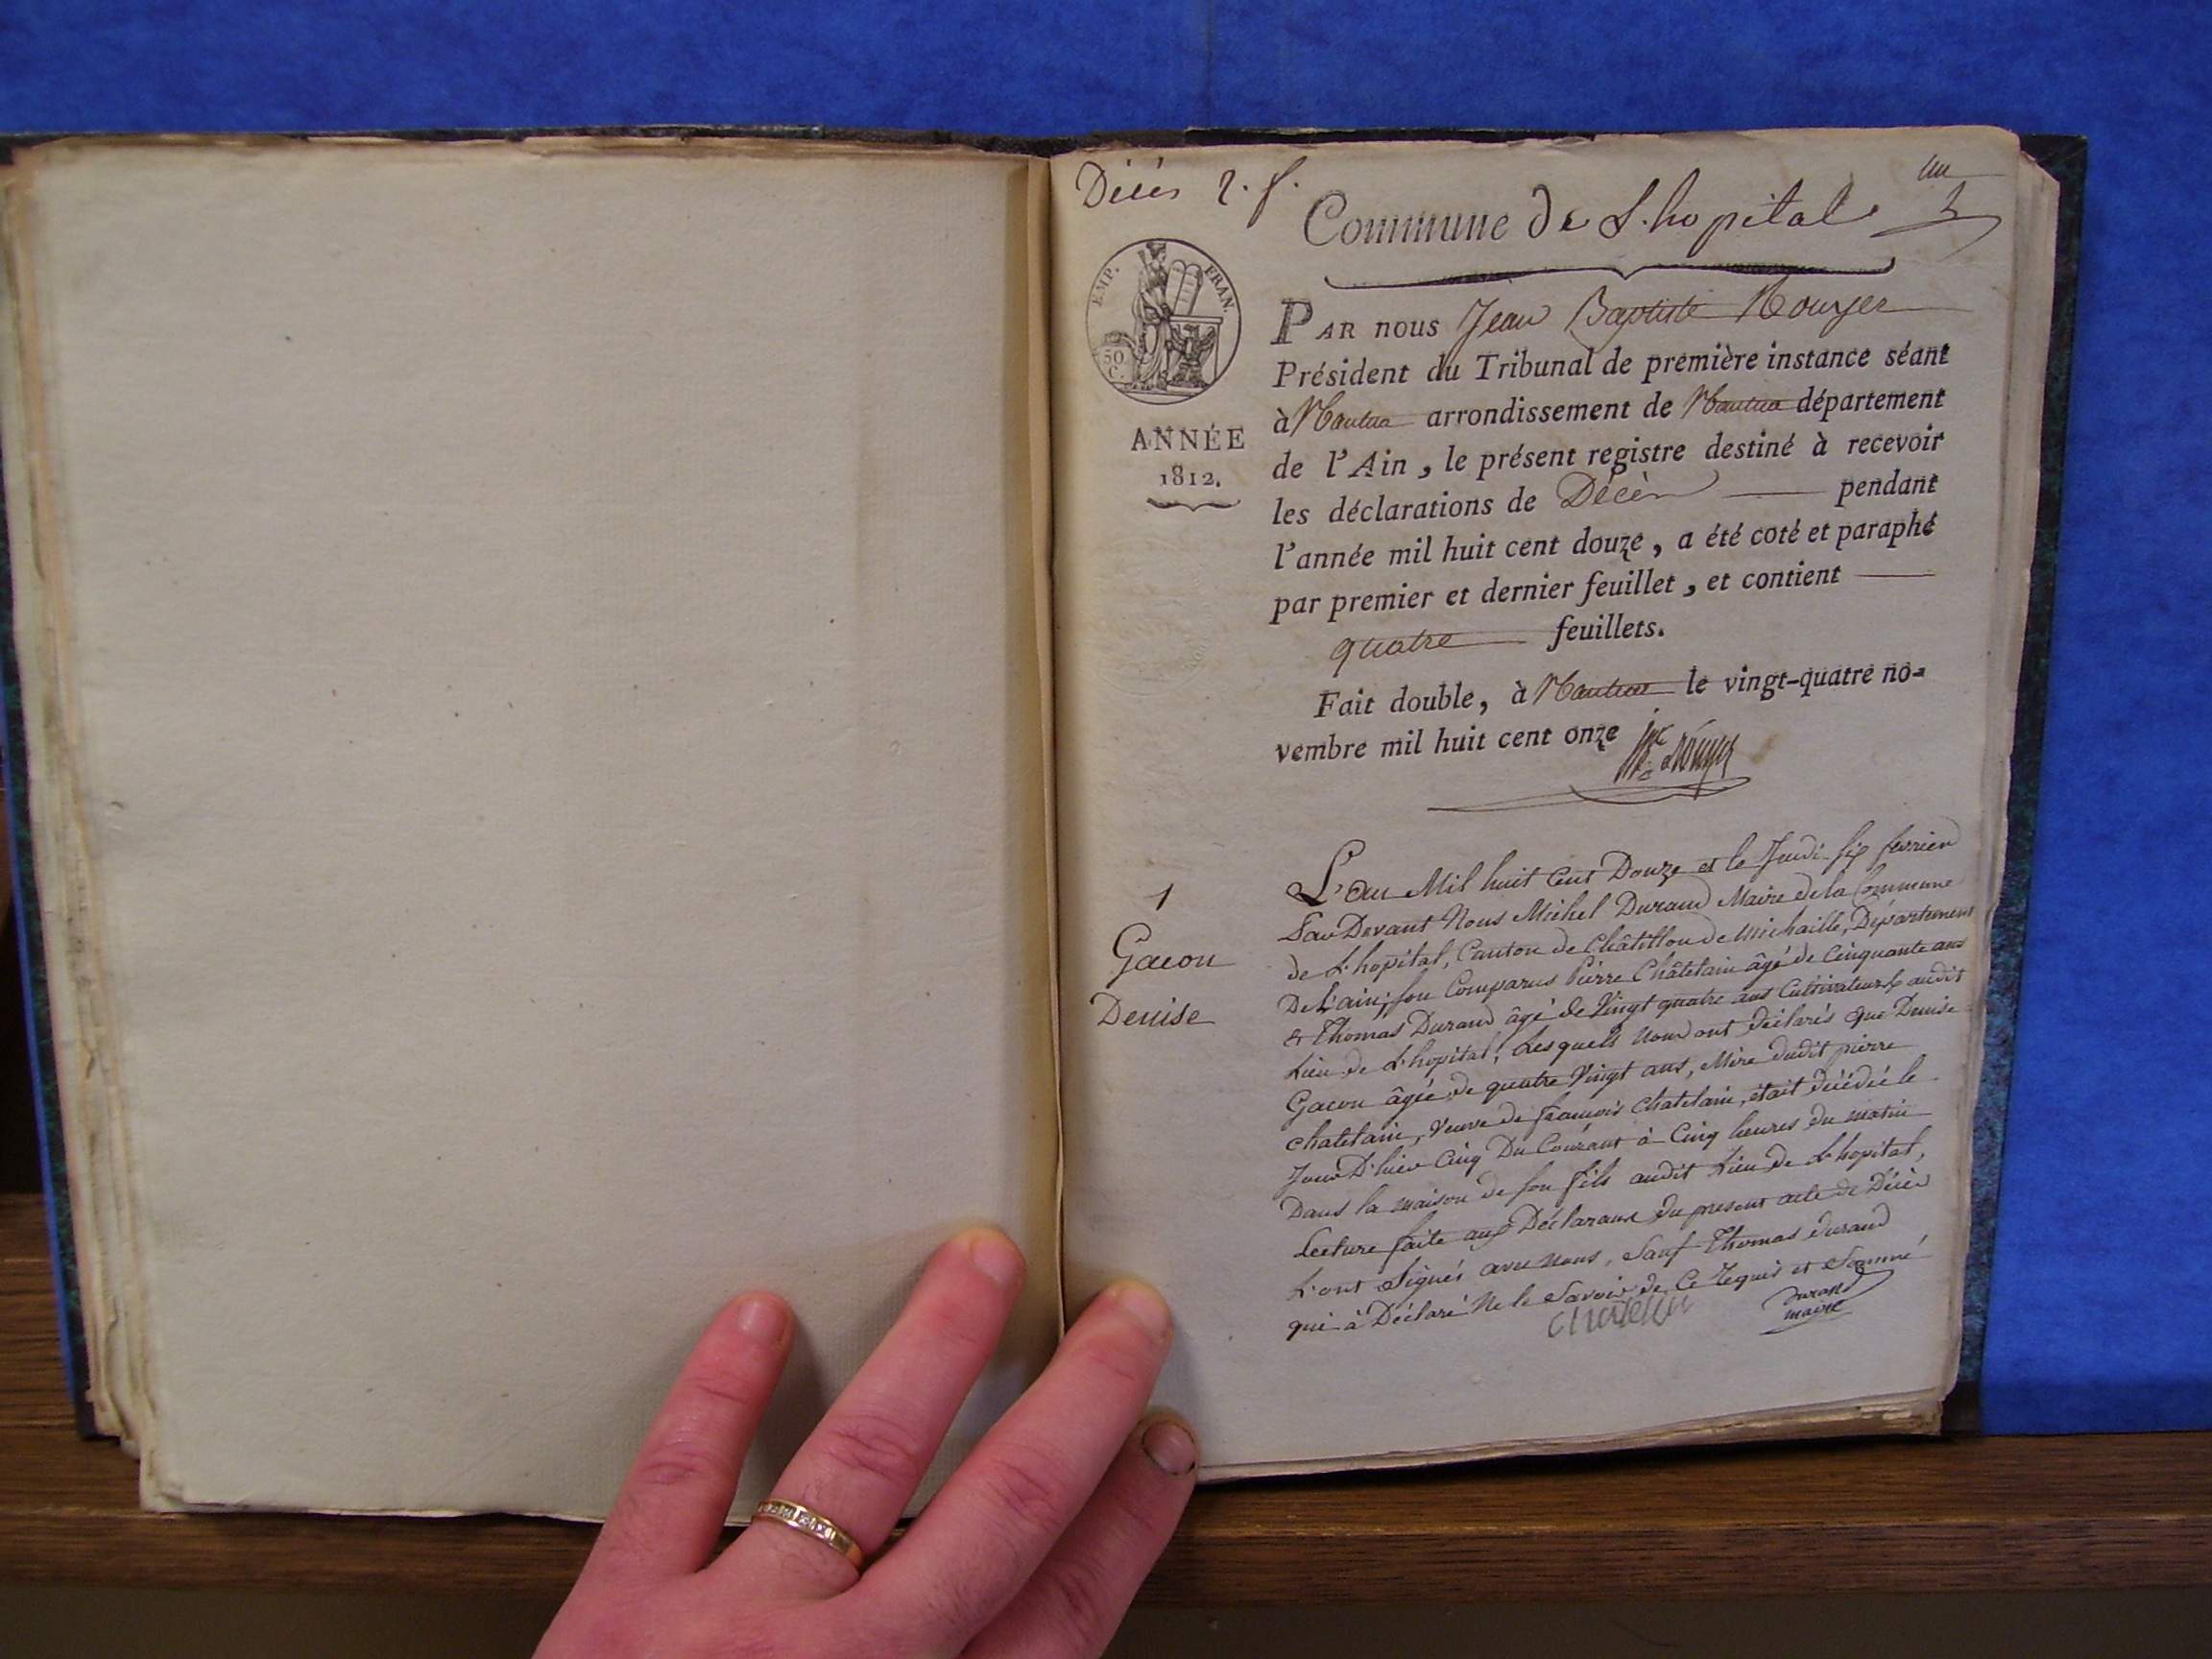 Décès 2. f.
un
1
Commune de L'hopital
EMP. FRAN.
50
C.
ANNÉE
1812.
PAR nous Jean Baptiste Rouyer
Président du Tribunal de première instance séant
à Nantua arrondissement de Nantua département
de l'Ain, le présent registre destiné à recevoir
les déclarations de Décès pendant
l'année mil huit cent douze, a été coté et paraphé
par premier et dernier feuillet, et contient
quatre feuillets.
Fait double, à Nantua le vingt-quatre no-
vembre mil huit cent onze
1
Gacon
Denise
L'an Mil huit Cent Douze et le Jeudi six fevrier
Par Devant Nous Michel Durand Maire de la Commune
de L'hopital, Canton de Châtillon de Michaille, Département
De L'ain; son Comparus Pierre Châtelain âgé de Cinquante ans
& Thomas Durand âgé de Vingt quatre ans Cultivateurs audit
Lieu de L'hopital, Lesquels Nous ont déclarés que Denise
Gacon âgée de quatre Vingt ans, Mère dudit pierre
chatelain, Veuve de francois Chatelain, était décédée le
Jour D'hier Cinq Du Courant à Cinq heures du matin
Dans la maison de son fils audit Lieu de L'hopital,
Lecture faite aux Déclarans du present acte de Décès
L'ont Signés avec nous, Sauf Thomas durand
qui à Déclaré Ne le Savoir de Ce Requis et Sommé
durand
maire